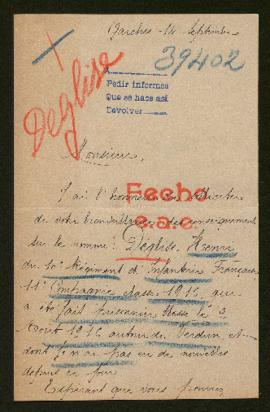 Barches 14 Septembre
39402
Déglise
Pedir informes
Que se hace así
Devolver
Monsieur,
J'ai l'honneur de solliciter
Fecho
e.a.c.
de votre
sur le nommé: Déglise Henri
du 10e Régiment d'Infanterie Française
11e Compagnie classe 1912 que
a été fait prisonnier blessé le 3
Aout 1916 autour de Verdun et
dont je n'ai pas eu de nouvelles
depuis ce jour.
Espérant que vous pourrez